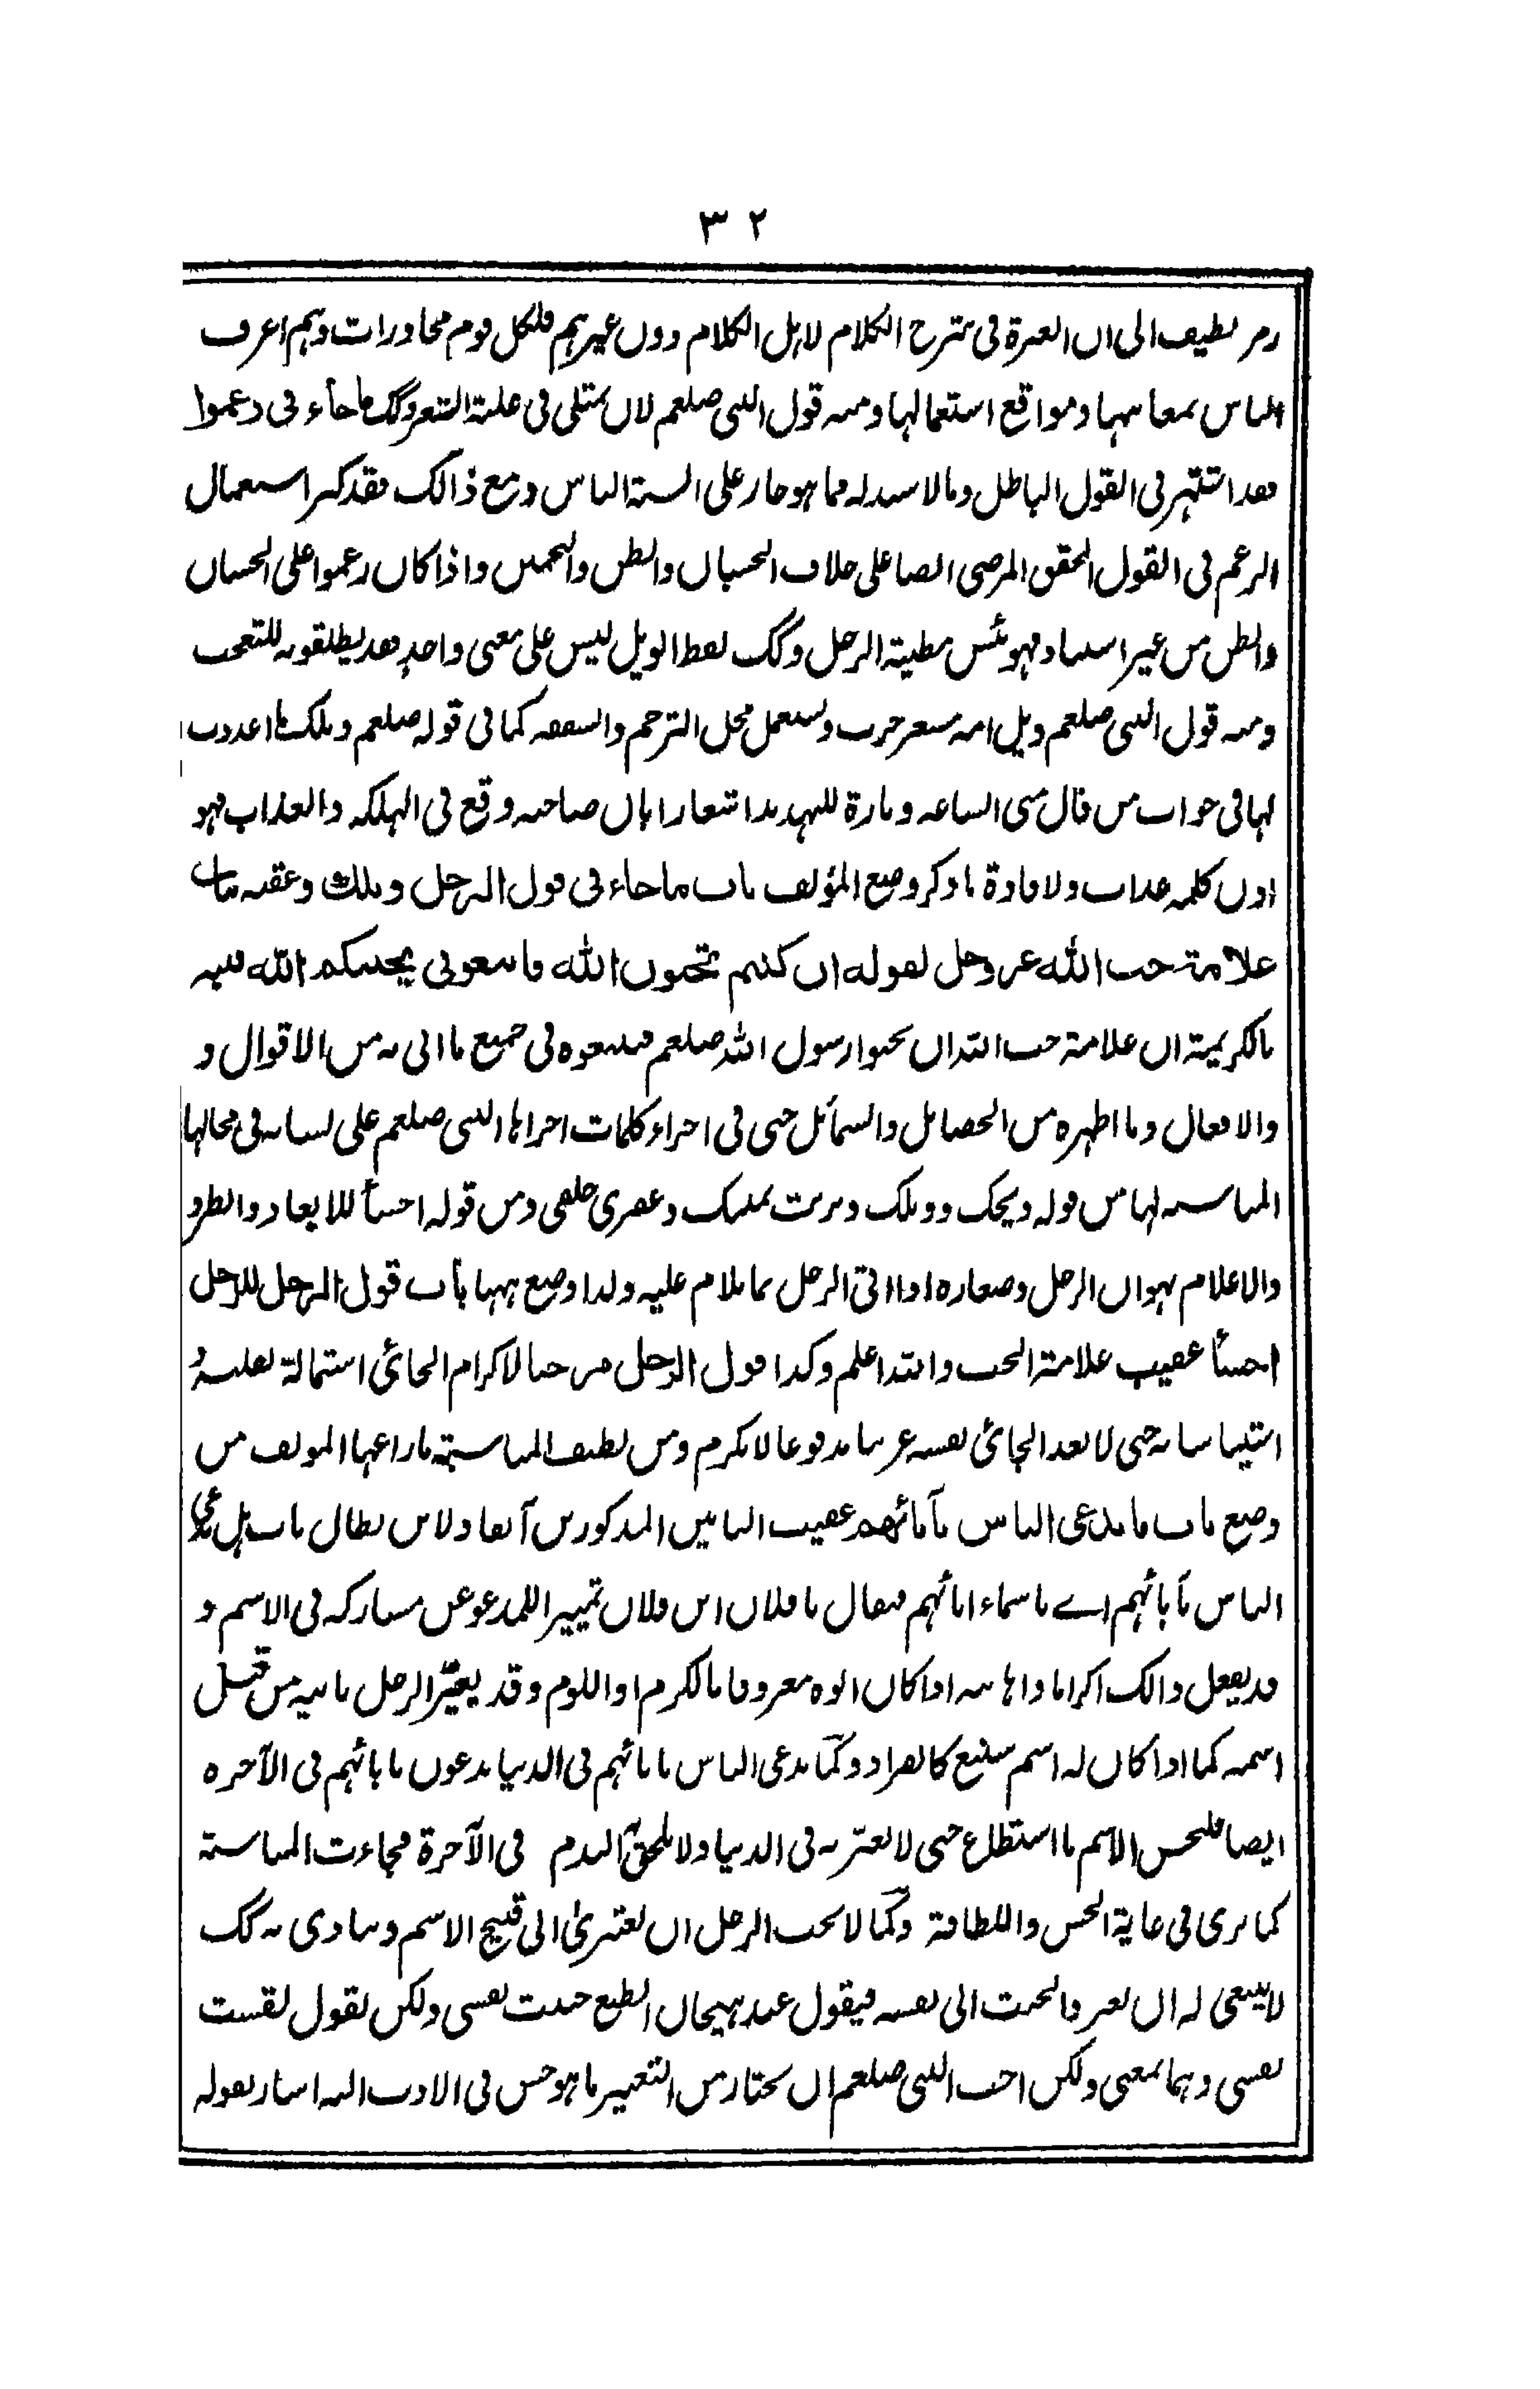 ٣٢
رمز لطيف الى ان العبرة فى شرح الكلام لاہل الكلام دون غيرہم فلكل قوم محاورات وہم اعرف
الناس بمعانيہا ومواقع استعمالہا ومنہ قول النبى صلعم لان يمتلى فى غلبة الشعر وكك ما جاء فى زعموا
فقد اشتہر فى القول الباطل ومالا سند لہ مما ہو جار على السنة الناس ومع ذالك فقد كثر استعمال
الزعم فى القول المحقق المرضى ايضا على خلاف الحسبان والظن والتخمين واذا كان زعموا على الحسبان
والظن من غير اسناد فہو بئس مطية الرجل وكك لفظ الويل ليس على معنى واحدٍ فقد يطلقونہ للتعجب
ومنہ قول النبى صلعم ويل امہ مسعر حرب ويستعمل محل الترحم والشفقہ كما فى قولہ صلعم ويلك ما اعددت
لہا فى جواب من قال متى الساعہ وتارة للتہديد اشعارا بان صاحبہ وقع فى الہلكہ والعذاب فہو
اذن كلمہ عذاب ولافادة ما ذكر وضع المؤلف باب ما جاء فى قول الرجل ويلك وعقبہ بباب
علامة حب الله عز وجل لقوله ان كنتم تحبون الله فاتبعونى يحببكم الله فنبہ
بالكريمة ان علامة حب اللہ ان تحبوا رسول اللہ صلعم فتتبعوہ فى جميع ما اتى بہ من الاقوال و
والافعال وما اظہرہ من الخصايل والشمائل حتى فى اجراء كلمات اجراہا النبى صلعم على لسانہ فى محالہا
المناسبہ لہا من قولہ ويحك وويلك وتربت يمينك وعقرى حلقى ومن قولہ اخسأ للابعاد والطرد
والاعلام بہوان الرجل وصغارہ اذا اتى الرجل بما يلام عليہ ولذا وضع ہہنا باب قول الرجل للرجل
اخسأ عقيب علامة الحب واللہ اعلم وكذا قول الرجل مرحبا لاكرام الجائى استمالة لقلبہ و
استيناسا بہ حتى لا يعد الجائى نفسہ غريبا مدفوعا لا يكرم ومن لطيف المناسبة ما راعہا المؤلف من
وضع باب ما يدعى الناس بآبائهم عقيب البابين المذكورين آنفا ولابن بطال باب ہل يدعى
الناس بآبائہم اے باسماء ابائہم فيقال يا فلان ابن فلان تمييزا للمدعو عن مشاركہ فى الاسم و
قد يفعل ذالك اكراما واہانہ اذا كان ابوہ معروفا بالكرم او اللوم وقد يعيّر الرجل بابيہ من قبل
اسمہ كما اذا كان لہ اسم شنيع كالفراد وكما يدعى الناس بابائہم فى الدنيا يدعون بابائہم فى الآخرہ
ايضا فليحسن الاسم ما استطاع حتى لا يعيّر بہ فى الدنيا ولا يلحقہ الندم فى الآخرة فجاءت المناسبة
كما ترى فى غاية الحسن واللطافة وكما لا يحب الرجل ان يعتزىٰ الى قبيح الاسم وينادى بہ كك
لا ينبغى لہ ان يعزو الخبث الى نفسہ فيقول عند ہيجان الطبع خبثت نفسى ولكن يقول لقست
نفسى وہما بمعنى ولكن احب النبى صلعم ان يختار من التعبير ما ہو حسن فى الادب اليہ اشار بقولہ